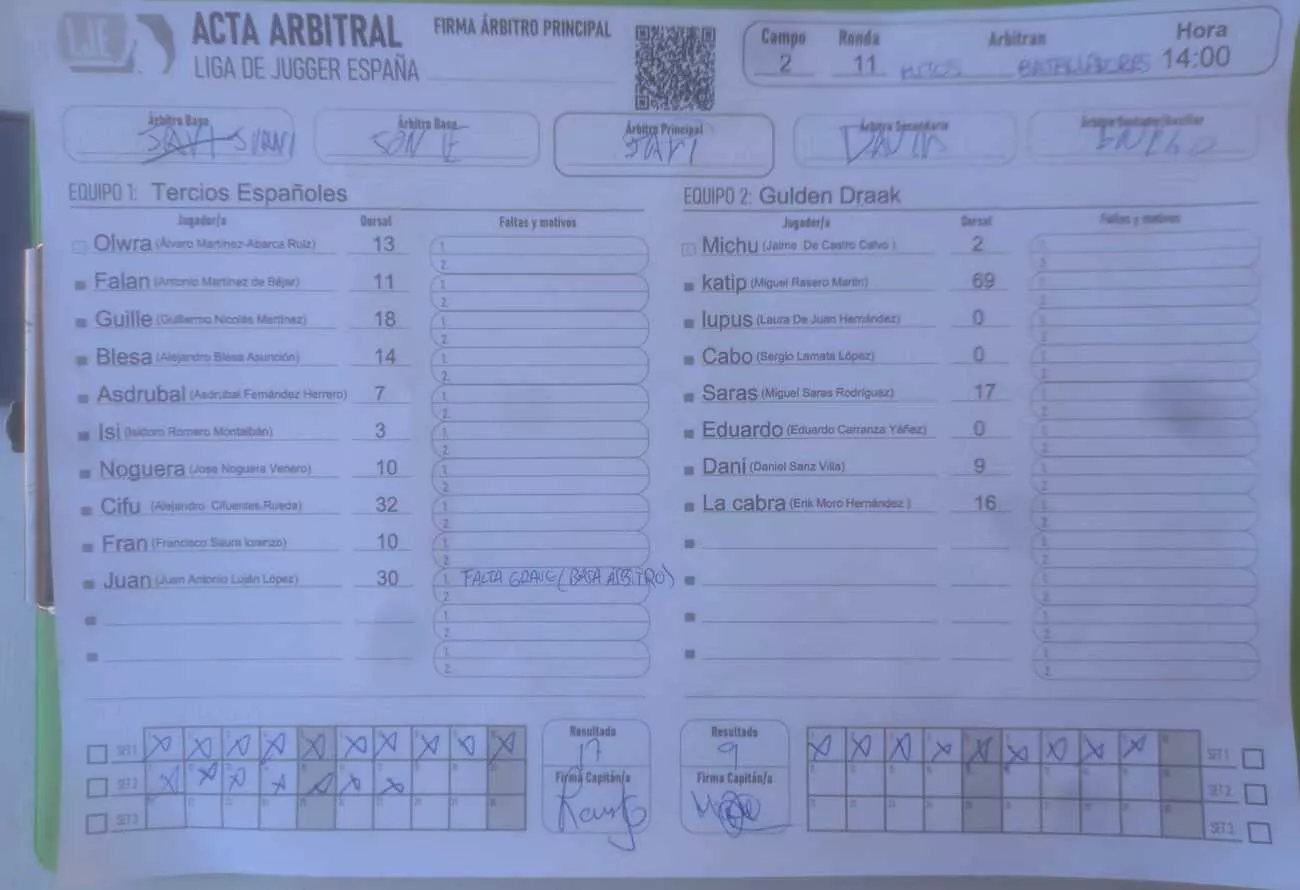 LJE
ACTA ARBITRAL
LIGA DE JUGGER ESPAÑA
FIRMA ÁRBITRO PRINCIPAL
Campo Ronda Arbitran Hora
2 11 BATALLADORES 14:00
Árbitro Base Árbitro Base Árbitro Principal Árbitro Secundario
JAVI
EQUIPO 1: Tercios Españoles
Jugador/a Dorsal Faltas y motivos
Olwra (Álvaro Martínez-Abarca Ruiz) 13 1. 2.
Falan (Antonio Martínez de Béjar) 11 1. 2.
Guille (Guillermo Nicolás Martínez) 18 1. 2.
Blesa (Alejandro Blesa Asunción) 14 1. 2.
Asdrubal (Asdrúbal Fernández Herrero) 7 1. 2.
Isi (Isidoro Romero Montalbán) 3 1. 2.
Noguera (Jose Noguera Venero) 10 1. 2.
Cifu (Alejandro Cifuentes Rueda) 32 1. 2.
Fran (Francisco Saura lorenzo) 10 1. 2.
Juan (Juan Antonio Luján López) 30 1. FALTA GRAVE (BASA ÁRBITRO) 2.
1. 2.
1. 2.
EQUIPO 2: Gulden Draak
Jugador/a Dorsal Faltas y motivos
Michu (Jaime De Castro Calvo ) 2
katip (Miguel Rasero Martín) 69
lupus (Laura De Juan Hernández) 0
Cabo (Sergio Lamata López) 0
Saras (Miguel Saras Rodríguez) 17
Eduardo (Eduardo Carranza Yáñez) 0
Dani (Daniel Sanz Villa) 9
La cabra (Erik Moro Hernández ) 16
SET 1
SET 2
SET 3
Resultado
17
Firma Capitán/a
Resultado
9
Firma Capitán/a
SET 1
SET 2
SET 3